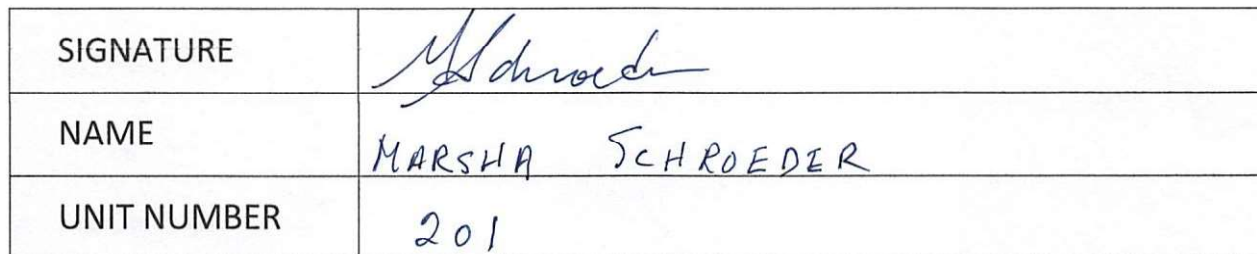 SIGNATURE MSchroeder
NAME MARSHA SCHROEDER
UNIT NUMBER 201